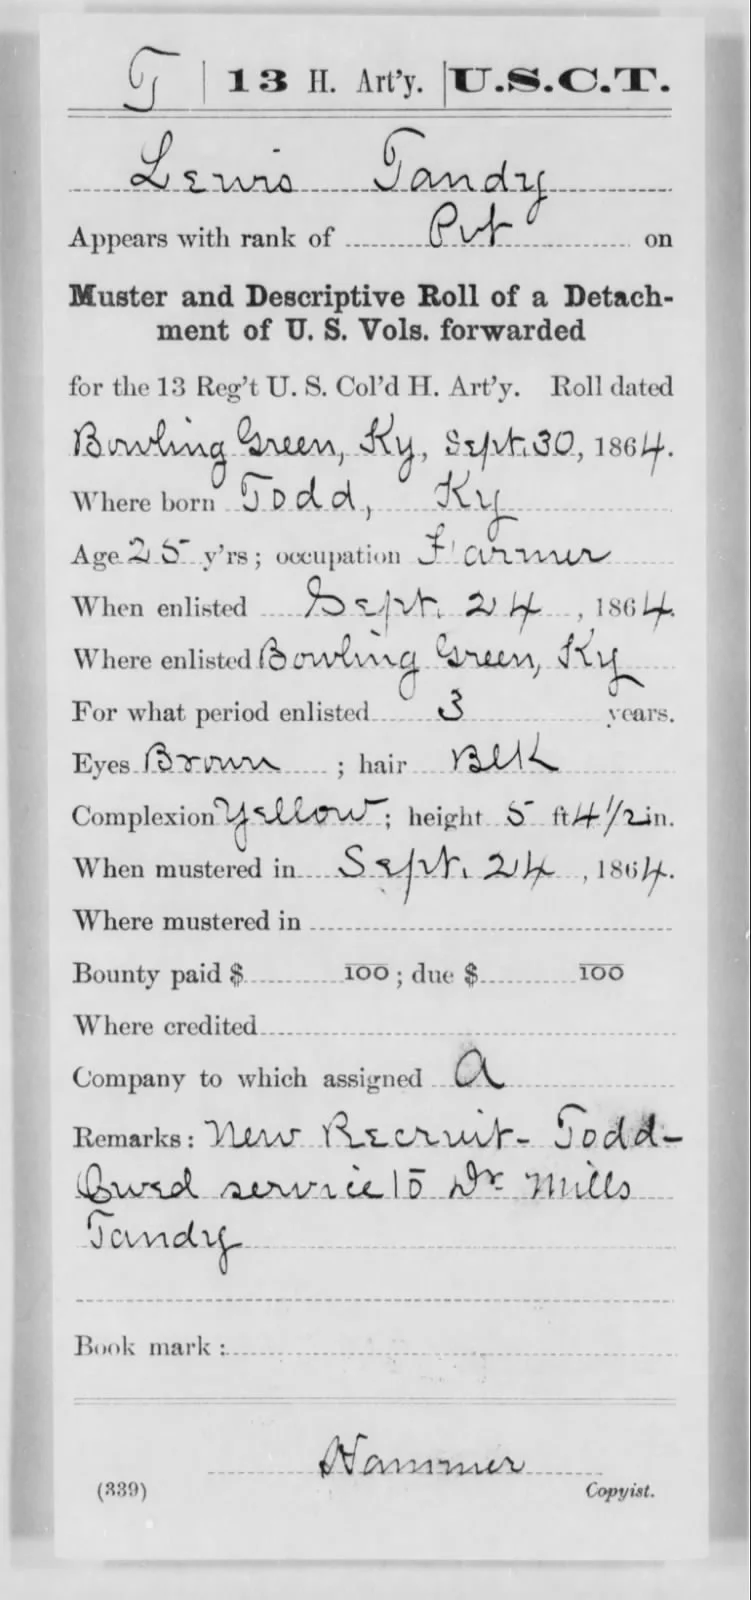 T | 13 H. Art'y. | U.S.C.T.
Lewis Tandy
Appears with rank of Pvt on
Muster and Descriptive Roll of a Detach-
ment of U. S. Vols. forwarded
for the 13 Reg't U. S. Col'd H. Art'y. Roll dated
Bowling Green, Ky, Sept. 30, 1864.
Where born Todd, Ky
Age 25 y'rs; occupation Farmer
When enlisted Sept. 24, 1864.
Where enlisted Bowling Green, Ky
For what period enlisted 3 years.
Eyes Brown ; hair Blk
Complexion Yellow; height 5 ft 4 1/2 in.
When mustered in Sept. 24, 1864.
Where mustered in
Bounty paid $ 100; due $ 100
Where credited
Company to which assigned A
Remarks: New Recruit- Todd-
Owed service to Dr Mills
Tandy
Book mark:
Hammer
(339) Copyist.